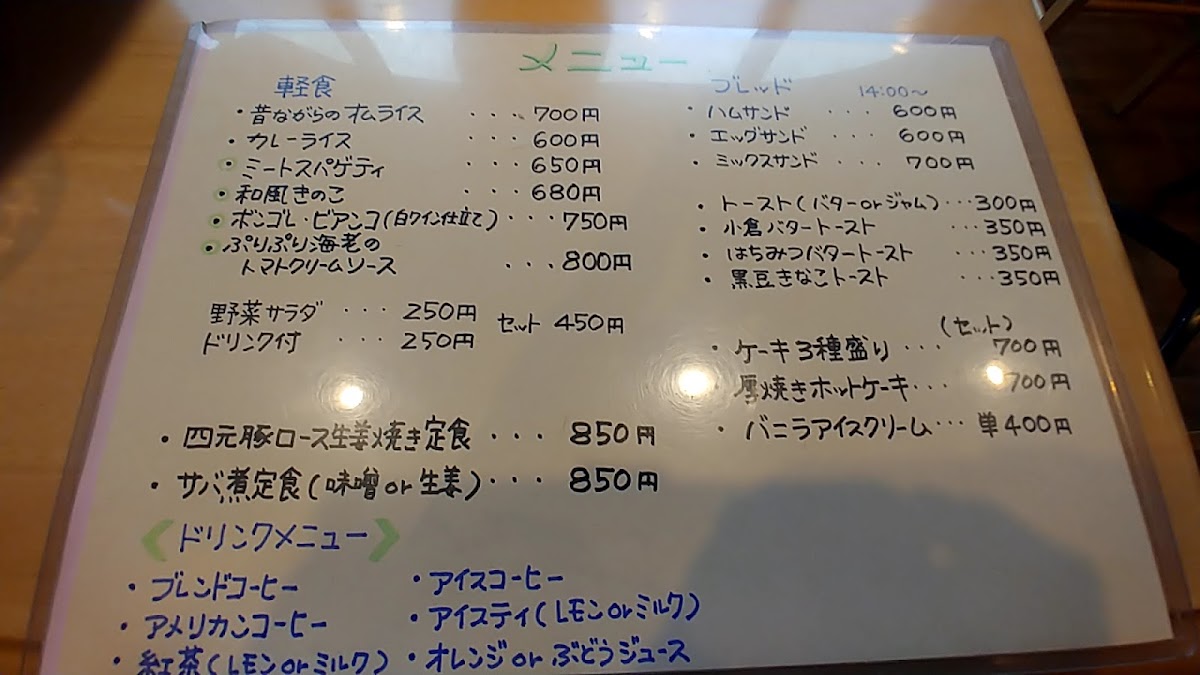 メニュー
軽食
・昔ながらのオムライス ・・・700円
・カレーライス ・・・600円
・ミートスパゲティ ・・・650円
・和風きのこ ・・・680円
・ボンゴレ・ビアンコ(白ワイン仕立て)・・・750円
・ぷりぷり海老の
トマトクリームソース ・・・800円
野菜サラダ ・・・250円
ドリンク付 ・・・250円
セット 450円
・四元豚ロース生姜焼き定食・・・850円
・サバ煮定食(味噌or生姜)・・・850円
ブレッド 14:00〜
・ハムサンド ・・・600円
・エッグサンド ・・・600円
・ミックスサンド ・・・700円
・トースト(バターorジャム)・・・300円
・小倉バタートースト ・・・350円
・はちみつバタートースト ・・・350円
・黒豆きなこトースト ・・・350円
(セット)
・ケーキ3種盛り・・・700円
・厚焼きホットケーキ・・・700円
・バニラアイスクリーム・・・単400円
《ドリンクメニュー》
・ブレンドコーヒー
・アメリカンコーヒー
・紅茶(レモンorミルク)
・アイスコーヒー
・アイスティ(レモンorミルク)
・オレンジorぶどうジュース